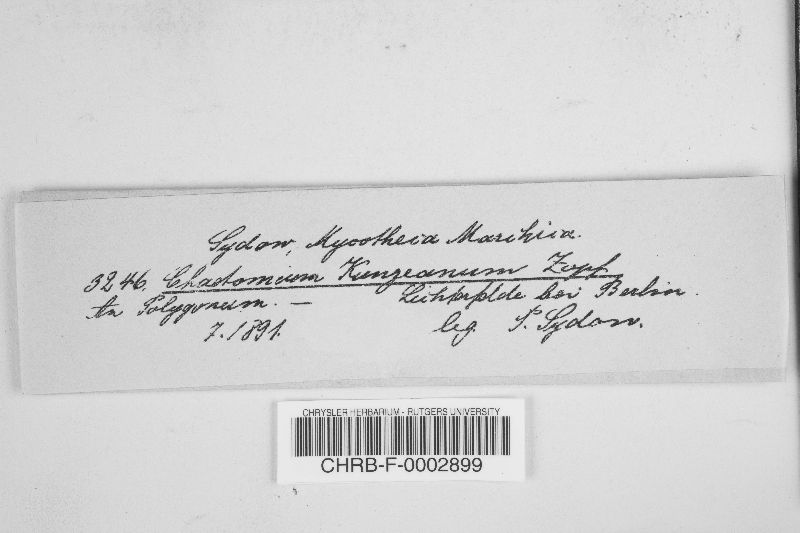 Sydow, Mycotheca Marchica.
3246. Chaetomium Kunzeanum Zopf
An Polygonum. — Lichterfelde bei Berlin.
7.1891. leg. P. Sydow.
CHRYSLER HERBARIUM - RUTGERS UNIVERSITY
CHRB-F-0002899